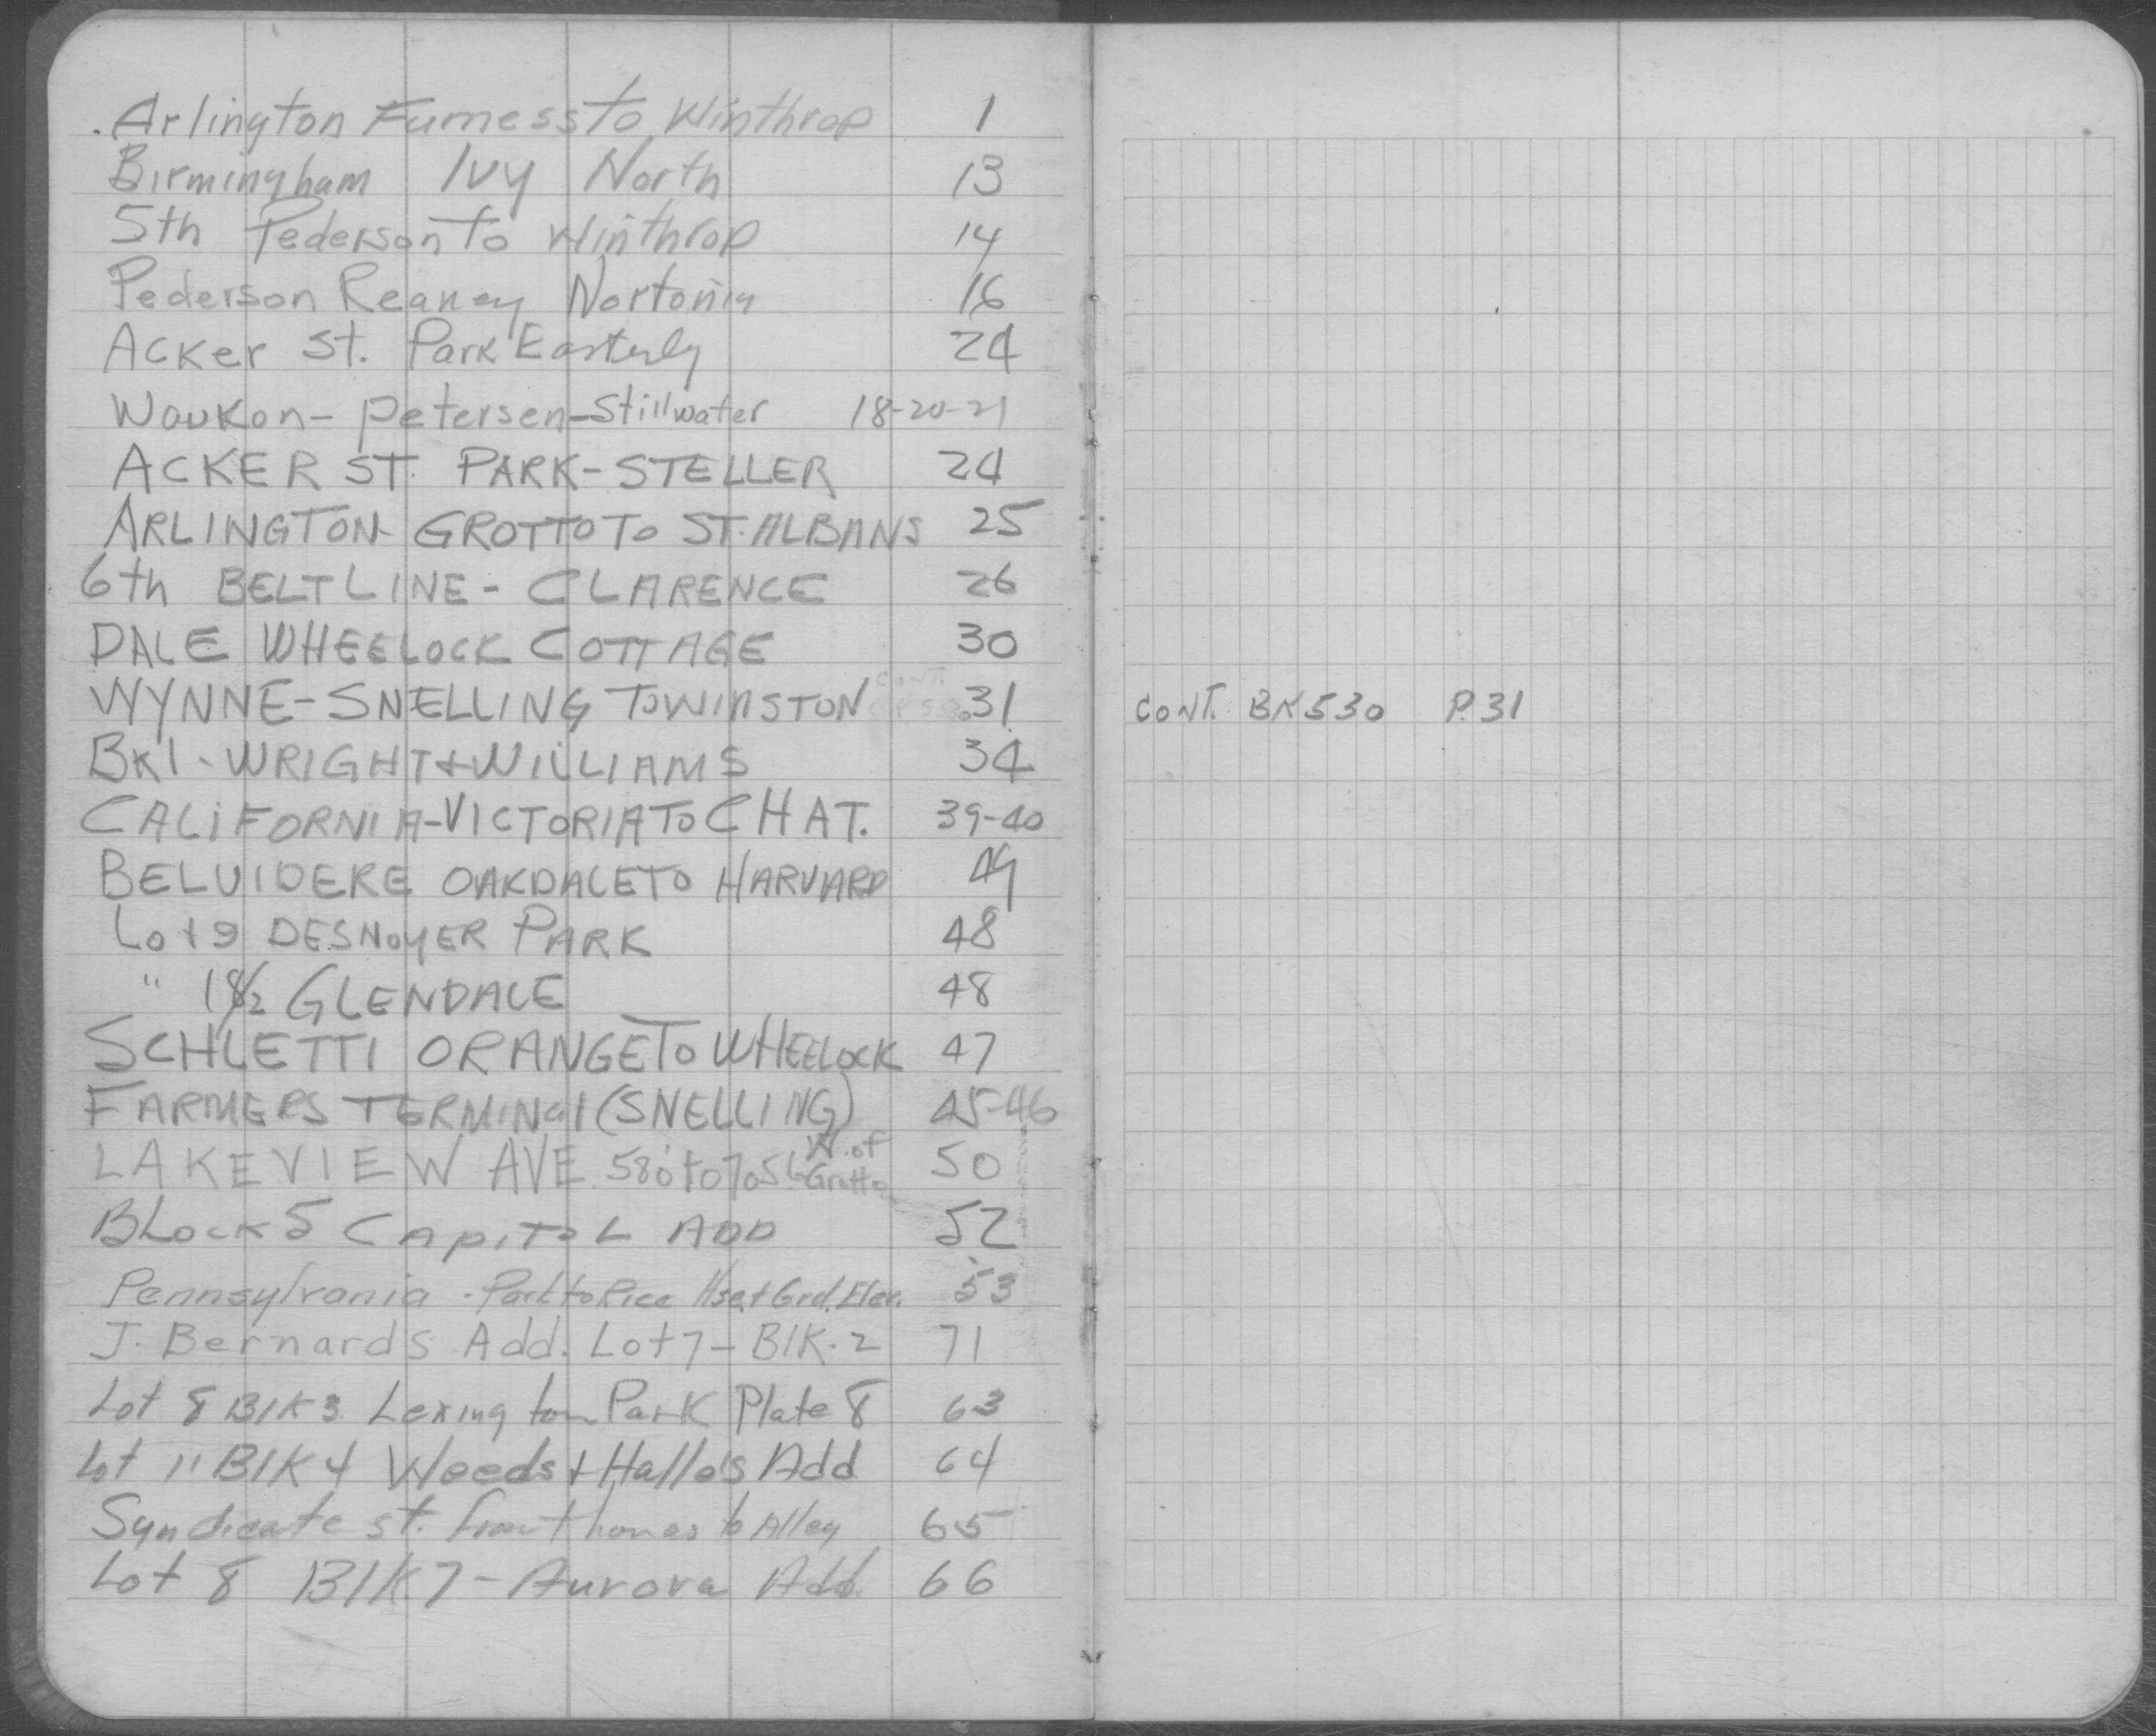 Arlington Furness to Winthrop 1
Birmingham Ivy North 13
5th Pederson To Winthrop 14
Pederson Reaney Nortonia 16
Acker St. Park Easterly 24
Waukon - Petersen - Stillwater 18-20-21
ACKER ST. PARK - STELLER 24
ARLINGTON - GROTTO TO ST. ALBANS 25
6th BELT LINE - CLARENCE 26
DALE WHEELOCK COTTAGE 30
WYNNE - SNELLING TO WINSTON 31 CONT. BK 530 P. 31
BK 1 - WRIGHT + WILLIAMS 34
CALIFORNIA - VICTORIA TO CHAT. 39-40
BELVIDERE OAKDALE TO HARVARD 49
Lot 9 DESNOYER PARK 48
" 18/2 GLENDALE 48
SCHLETTI ORANGE TO WHEELOCK 47
FARMERS TERMINAL (SNELLING) 45-46
LAKEVIEW AVE. 580' to 705' W. of Grotto 50
BLOCK 5 CAPITOL ADD 52
Pennsylvania - Park to Rice Hse + Grd. Elev. 53
J. Bernards Add. Lot 7 - Blk. 2 71
Lot 8 Blk 3 Lexington Park Plate 8 63
Lot 11 Blk 4 Weeds + Halle's Add 64
Syndicate St. from Thomas to Alley 65
Lot 8 Blk. 7 - Aurora Add. 66